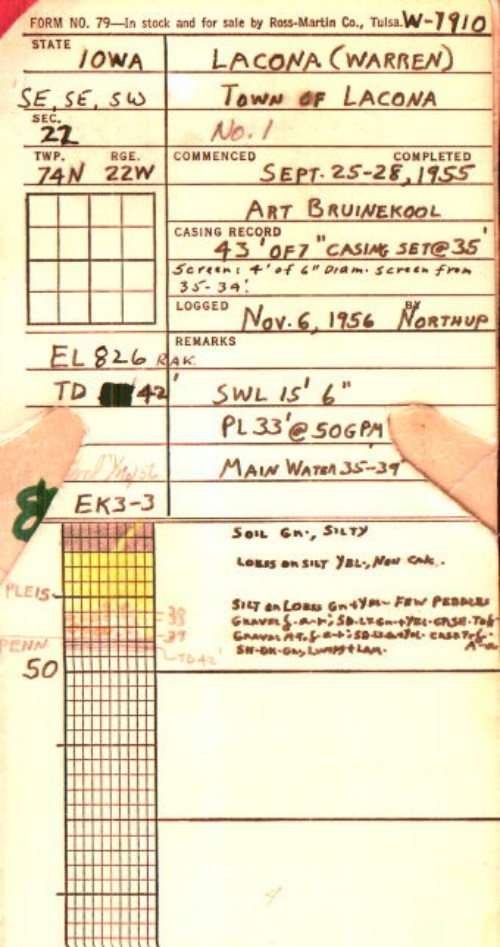 FORM NO. 79—In stock and for sale by Ross-Martin Co., Tulsa. W-7910
STATE IOWA LACONA (WARREN)
SE, SE, SW TOWN OF LACONA
SEC. 22 No. 1
TWP. 74N RGE. 22W COMMENCED COMPLETED
SEPT. 25-28, 1955
ART BRUINEKOOL
CASING RECORD
43' OF 7" CASING SET@35'
Screen: 4' of 6" Diam. screen from
35-39'
LOGGED Nov. 6, 1956 BY NORTHUP
EL 826 RAK. REMARKS
TD 42' SWL 15' 6"
PL 33' @ 50GPM
MAIN WATER 35-39'
EK3-3
SOIL GN., SILTY
LOESS OR SILT YEL., NON CAL.
PLEIS
SILT OR LOESS GN+YEL- FEW PEBBLES
38
39
PENN
TD 42'
SH-DK-GN, LUMPY+LAM.
50